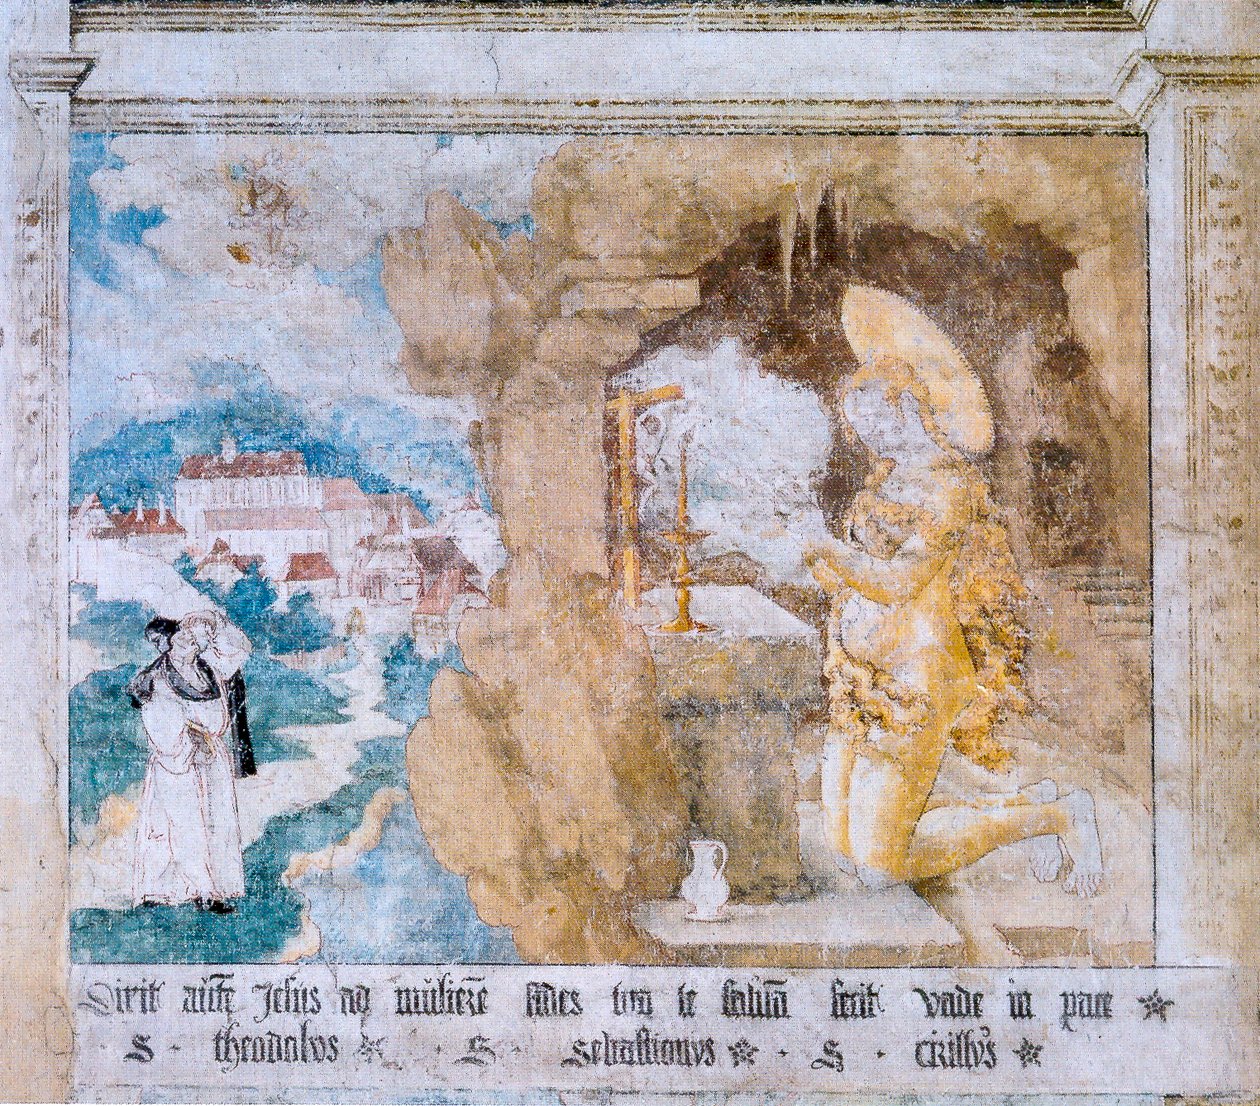 Dixit aūtē Jesus ad mulierē fides tua te saluā fecit vade in pace
S · theodolus · S · Sebastianus · S · cirillus